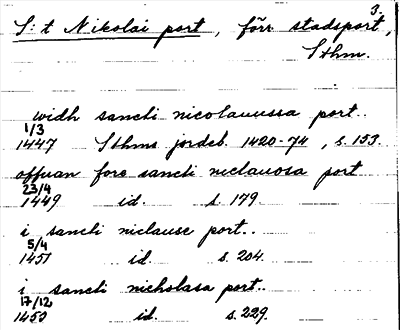 3.
S:t Nikolai port, förr stadsport,
Sthm.
widh sancti nicolauussa port..
1/3
1447 Sthms jordeb. 1420-74, s. 153.
offuan fore sancti niclauosa port
23/4
1449 id. s. 179.
i sancti niclause port..
5/4
1451 id. s. 204.
i sancti nicholasa port..
17/12
1453 id. s. 229.